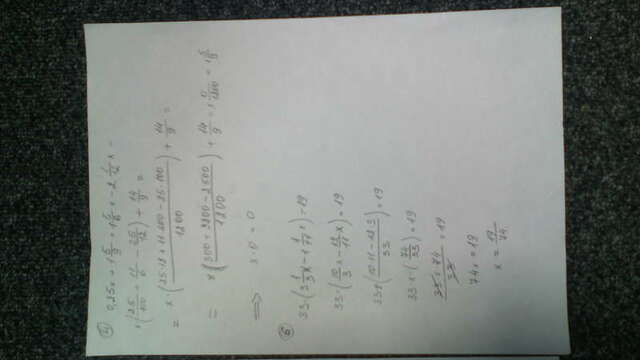 а) 0,25x + 1 5/9 + 1 5/6 x - 2 1/12 x =
x(25/100 + 11/6 - 25/12) + 14/9 =
= x·(25·12 + 11·200 - 25·100 / 1200) + 14/9 =
= x(300 + 2200 - 2500 / 1200) + 14/9 =
⟹ x·0 = 0
б) 33·(3 1/3 x - 1 1/11 x) = 19
33·(10/3 x - 12/11 x) = 19
= 19
33x(74/33) = 19
33·74/33 = 19
74x = 19
x = 19/74